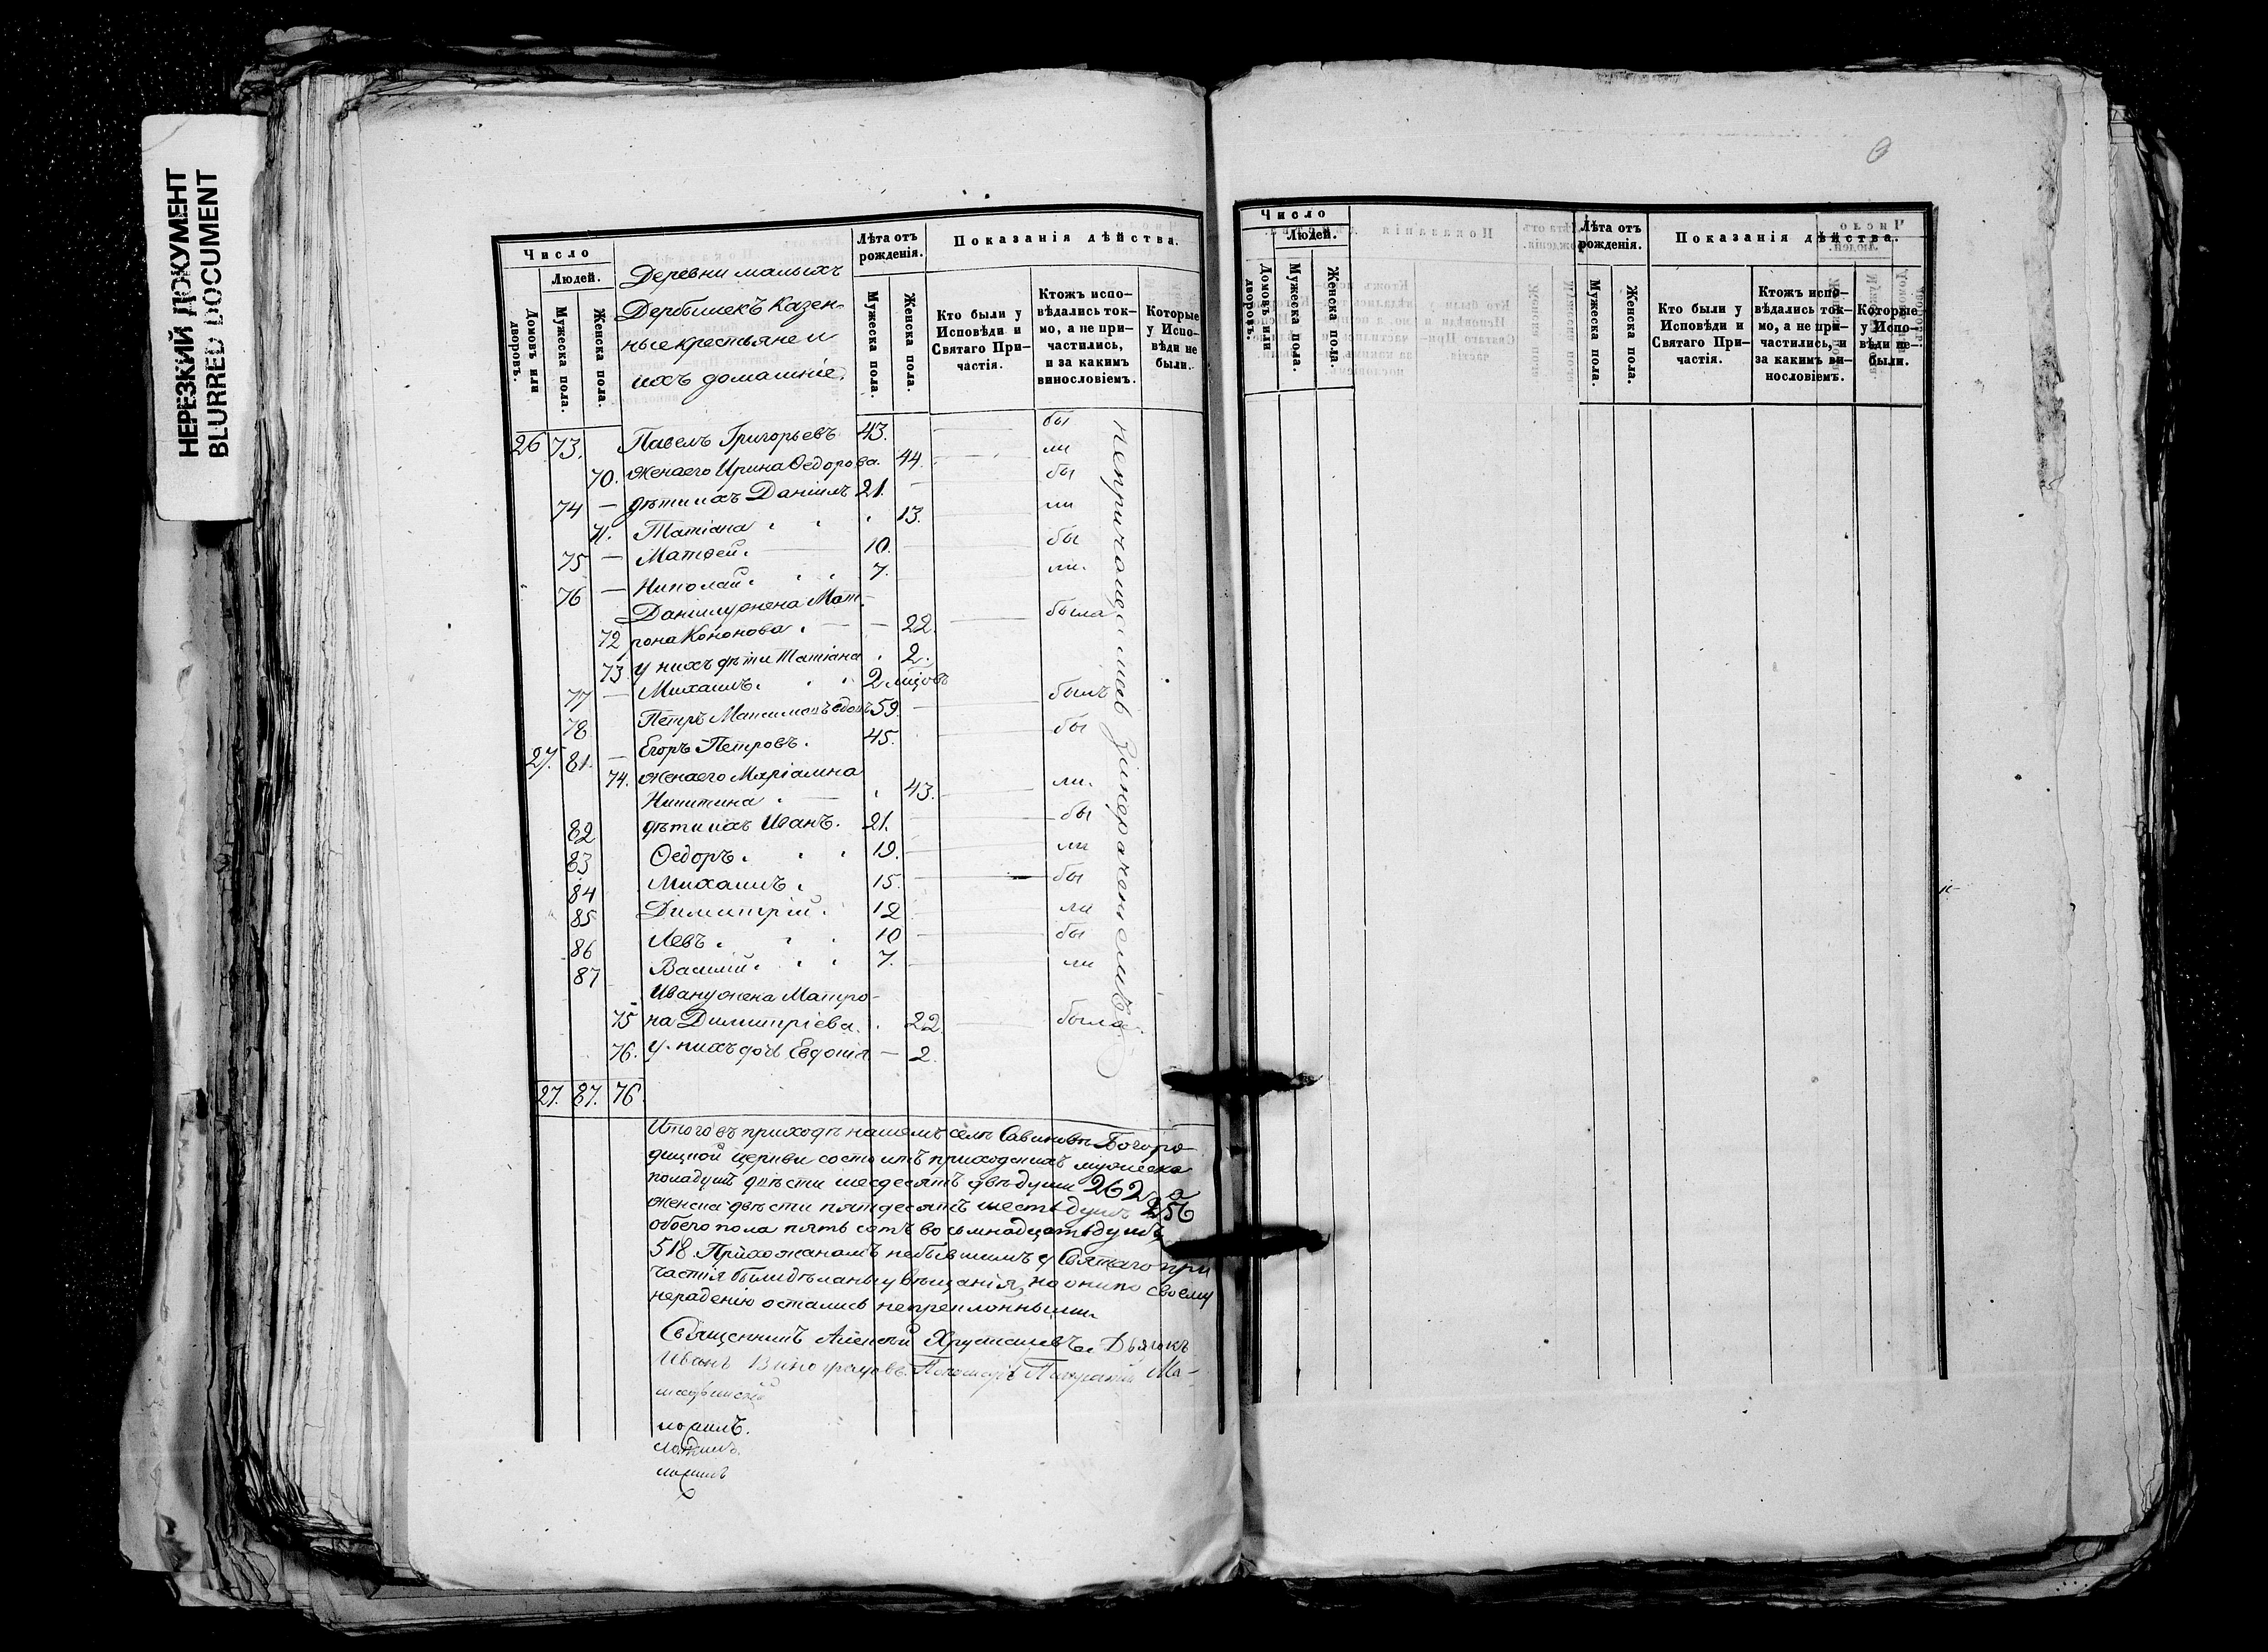 НЕРЕЗКИЙ ДОКУМЕНТ
BLURRED DOCUMENT
Число
Людей.
Домовъ или дворовъ.
Мужеска пола.
Женска пола.
Деревни малыхъ
Дербышекъ казен-
ные крестьяне и
ихъ домашніе.
Лѣта отъ рожденія.
Мужеска пола.
Женска пола.
Показанія дѣйства.
Кто были у Исповѣди и Святаго При-частія.
Ктожъ испо-вѣдались ток-мо, а не при-частились, и за какимъ винословіемъ.
Которые у Испо-вѣди не были.
26 73. Павелъ Григорьевъ 43. бы
70. жена его Ирина Федорова. 44. ли
74 — дѣти ихъ Даніилъ 21. бы
71. Татіана 13. ли
75 — Матѳей 10. бы
76 — Николай 7. ли.
Даніилу жена Мат-
72 рона Кононова 22. была
73. у нихъ дѣти Татіана 2.
77 — Михаилъ 2 мѣсяцовъ
78 Петръ Максимовъ вдовъ 59. былъ
27. 81. — Егоръ Петровъ. 45. бы
74. жена его Маріамна
Никитина 43. ли.
82 дѣти ихъ Иванъ. 21. бы
83 Ѳедоръ 19. ли
84 Михаилъ 15. бы
85 Димитрій 12 ли
86 Левъ 10 бы
87 Василій 7. ли
Ивану жена Матро-
75 на Димитріева. 22. была
76. у нихъ дочь Евдокія — 2.
27. 87. 76.
Итого въ приходѣ нашемъ селѣ Савиновѣ Богоро-
дицкой церкви состоитъ приходскихъ мужеска
пола душъ двѣсти шесдесятъ двѣ души 262, а
женска двѣсти пятдесятъ шесть душъ 256
обоего пола пять сотъ восьмнадцать душъ
518. Прихожанамъ небывшимъ у Святаго при
частія были дѣланы увѣщанія, но они по своему
нерадѣнію остались непреклонными.
Священникъ Алексѣй Хрусталевъ. Дьячокъ
Иванъ Виноградовъ. Пономарь
Число
Людей.
Домовъ или дворовъ.
Мужеска пола.
Женска пола.
Лѣта отъ рожденія.
Мужеска пола.
Женска пола.
Показанія дѣйства.
Кто были у Исповѣди и Святаго При-частія.
Ктожъ испо-вѣдались ток-мо, а не при-частились, и за какимъ ви-нословіемъ.
Которые у Испо-вѣди не-были.